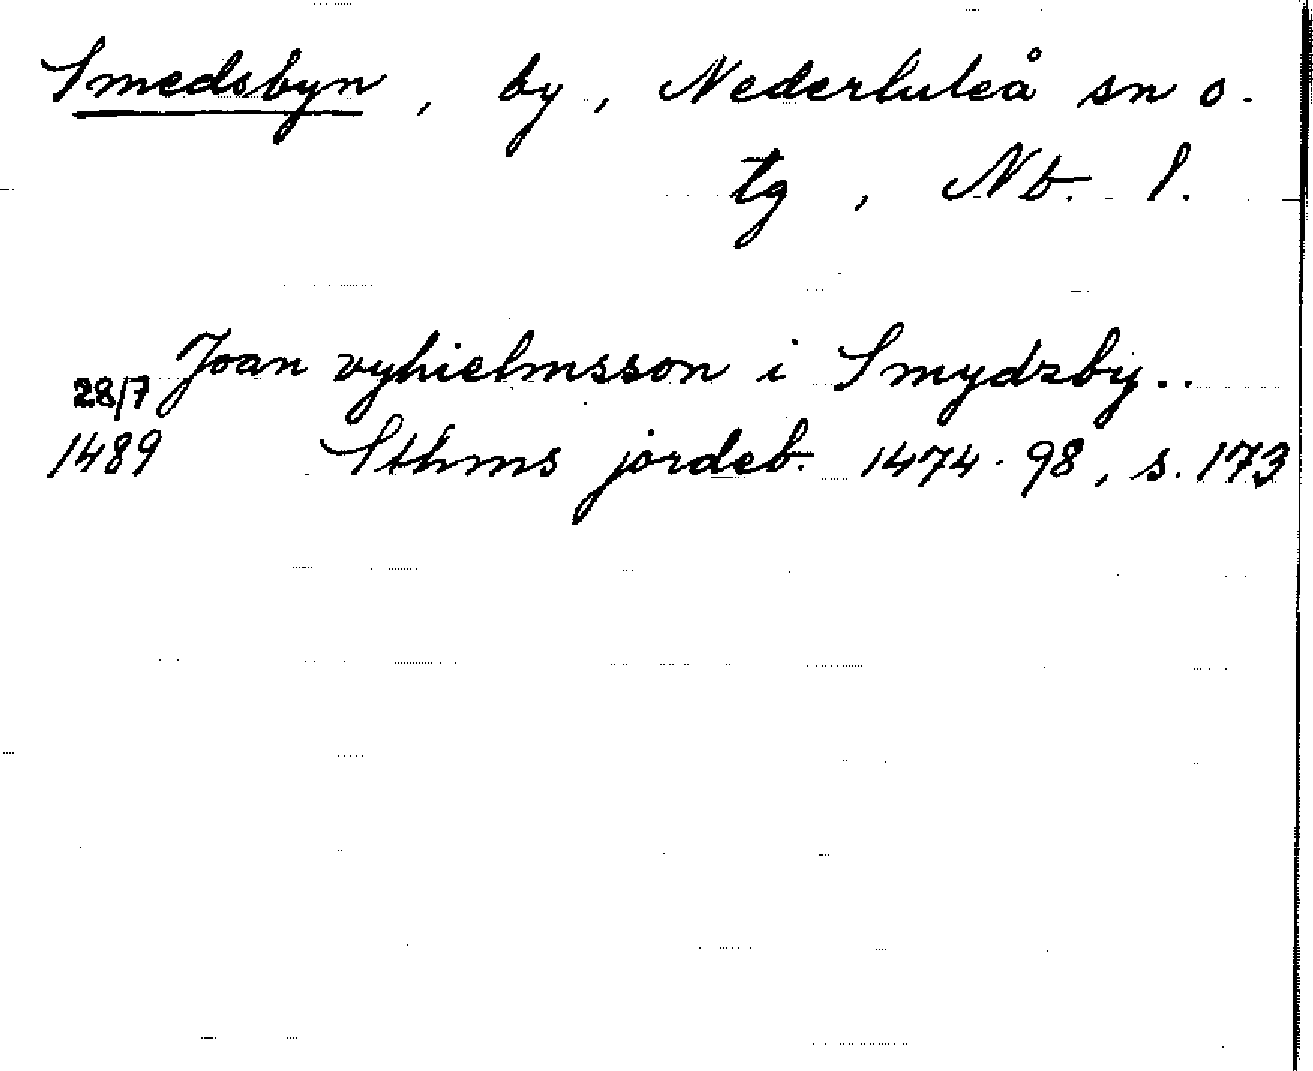 Smedsbyn, by, Nederluleå sn o.
tg, Nb. l.
Joan vyhielmsson i Smydzby..
28/7
1489 Sthms jordeb. 1474-98, s. 173